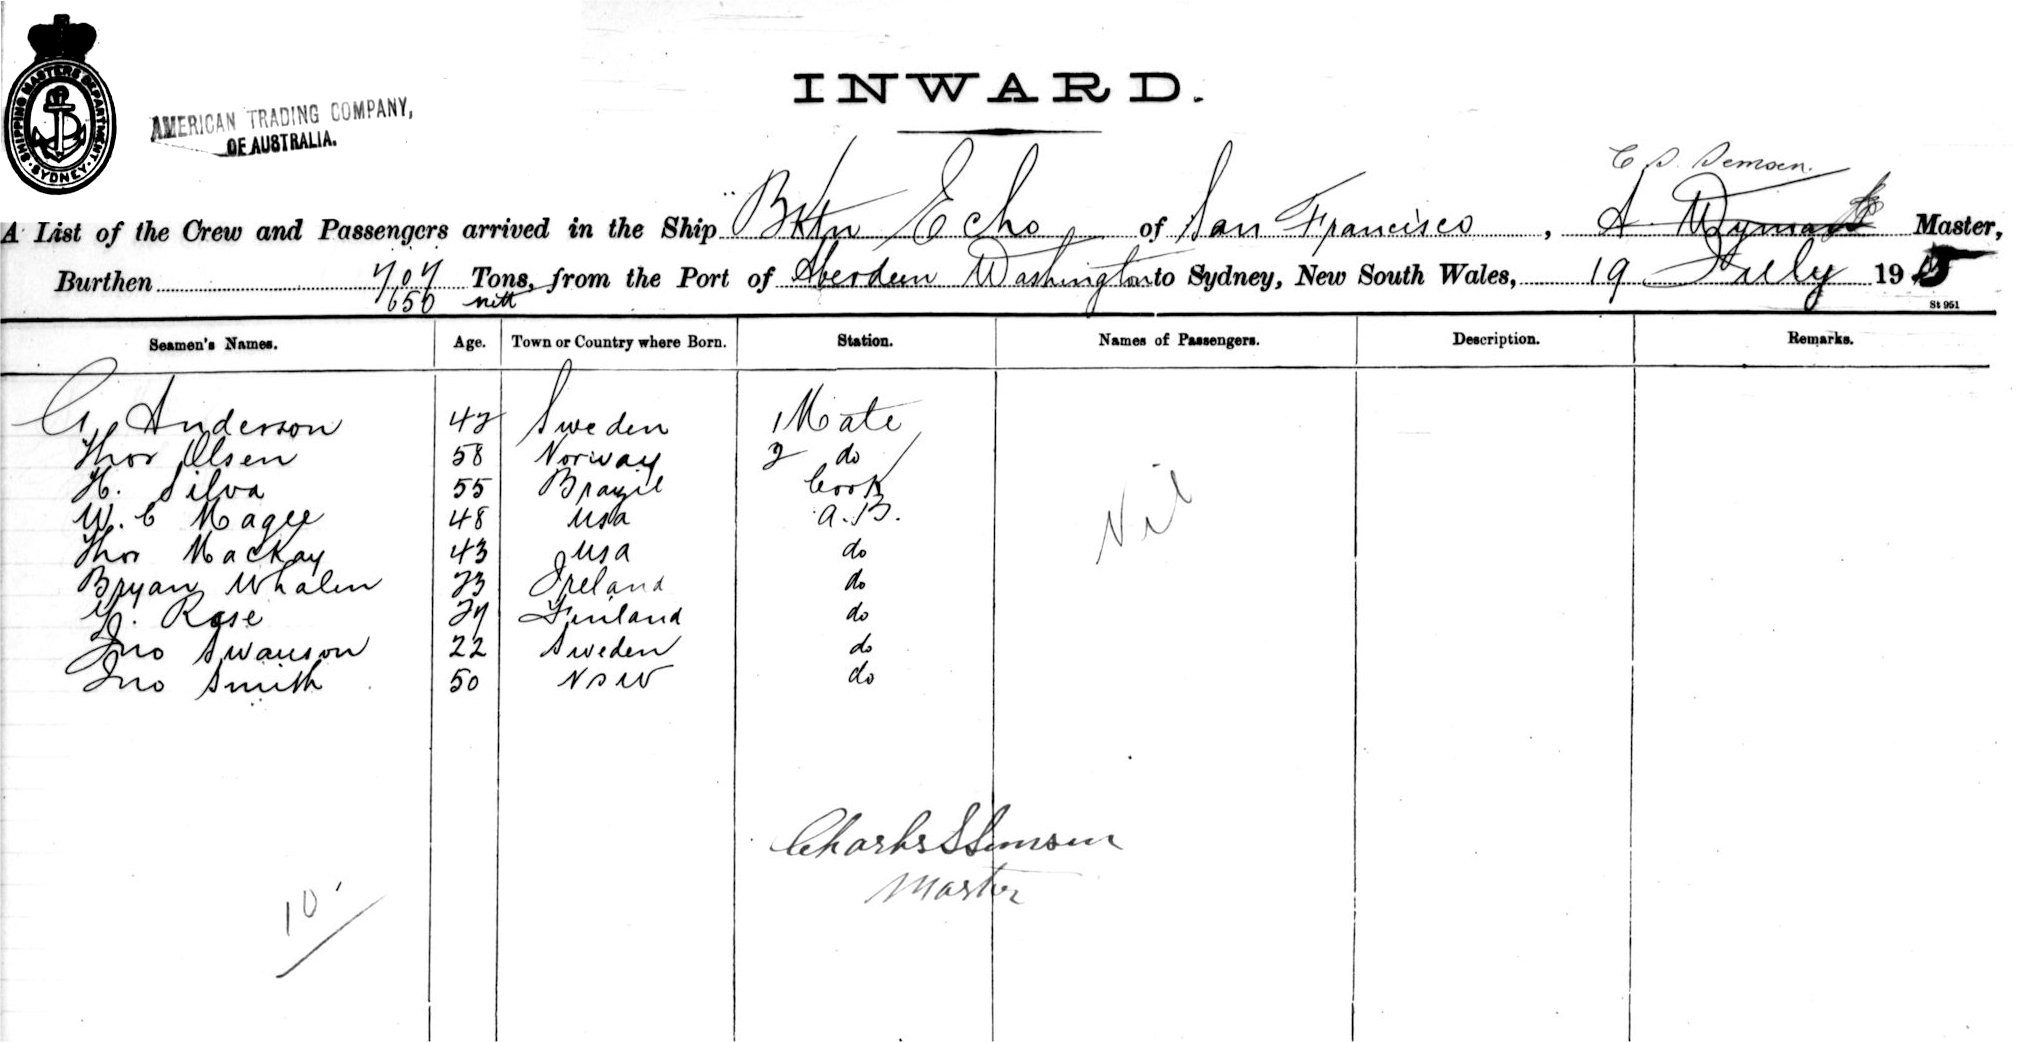 SHIPPING MASTERS DEPARTMENT. SYDNEY
AMERICAN TRADING COMPANY,
OF AUSTRALIA.
INWARD.
C. S.
A List of the Crew and Passengers arrived in the Ship Bktn Echo of San Francisco, A. Wyman Master,
Burthen 707 Tons, from the Port of Aberdeen Washington to Sydney, New South Wales, 19 July 195
650 nett
St 951
Seamen's Names. Age. Town or Country where Born. Station. Names of Passengers. Description. Remarks.
G. Anderson 42 Sweden 1 Mate
Thor Olsen 58 Norway 2 do
H. Silva 55 Brazil Cook
W. C Magee 48 USA A.B.
Thor Mackay 43 USA do
Bryan Whalen 23 Ireland do
Y. Rose 27 Finland do
Jno Swanson 22 Sweden do
Jno Smith 50 NSW do
Nil
Charles S
Master
10